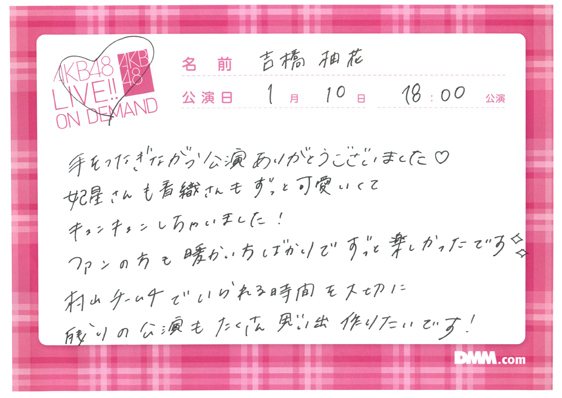 AKB48
LIVE!!
ON DEMAND
AKB
48
名前 吉橋 柚花
公演日 1月 10日 18:00 公演
手をつなぎながら公演ありがとうございました♡
妃星さんも香織さんもずっと可愛いくて
キュンキュンしちゃいました!
ファンの方も暖かい方ばかりでずっと楽しかったです✧✧
村山チーム4でいられる時間を大切に
残りの公演もたくさん思い出作りたいです!
DMM.com